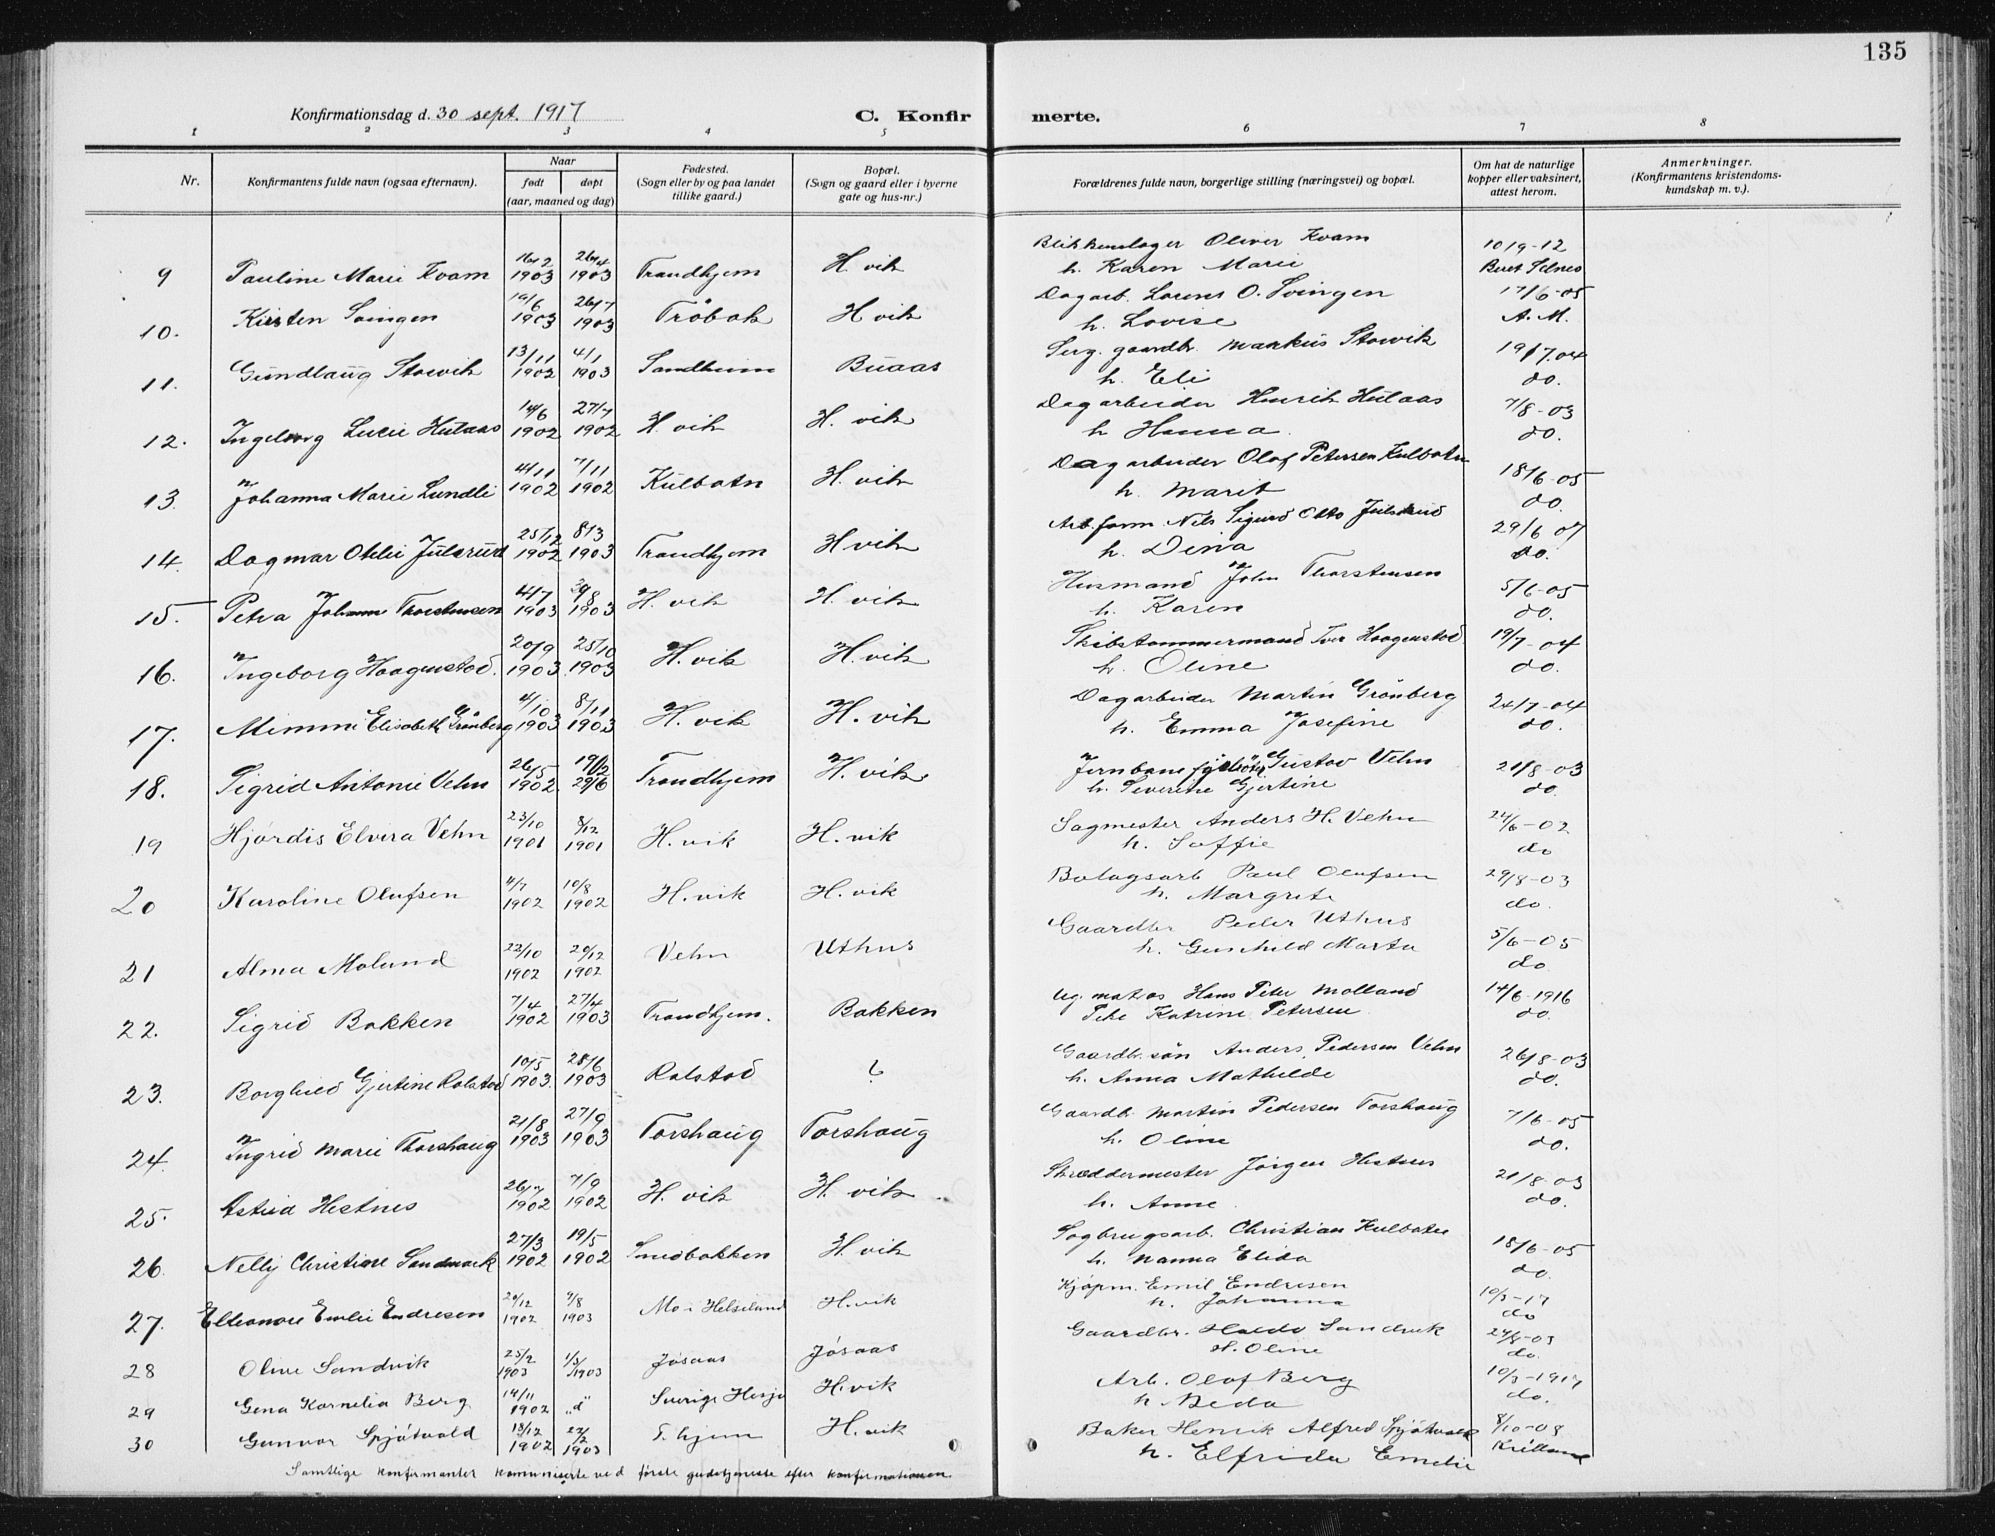 135
Konfirmationsdag d. 30 sept. 1917
C. Konfirmerte.
1 2 3 4 5 6 7 8
Nr.
Konfirmantens fulde navn (ogsaa efternavn).
Naar
født døpt
(aar, maaned og dag)
Fødested.
(Sogn eller by og paa landet
tillike gaard.)
Bopæl.
(Sogn og gaard eller i byerne
gate og hus-nr.)
Forældrenes fulde navn, borgerlige stilling (næringsvei) og bopæl.
Om hat de naturlige
kopper eller vaksinert,
attest herom.
Anmerkninger.
(Konfirmantens kristendoms-
kundskap m. v.).
Blikkenslager Oliver Kvam 10/9-12
9 Pauline Marie Kvam 1903 26/4 1903 Trondhjem H.vik h. Karen Marie Beret Selnes
Dagarb. Lorens O. Svingen 17/6-05
10. Kirsten Svingen 19/6 1903 26/7 1903 H.vik h. Lovise A. M.
gaardbr. Markus Storvik 19/7 04
11. Gundlaug Storvik 13/11 1902 4/1 1903 Sandheim Buaas h. Eli do.
Dagarbeider Henrik Hulaas 7/8-03
12. Ingeborg Lucie Hulaas 1902 27/7 1902 H.vik H.vik h Hanna do.
Dagarbeider Olof Petersen Kulbotn 18/6-05
13. Johanna Marie Lundli 4/11 1902 7/11 1902 Kulbotn H.vik h. Marit do.
Arb.form. Nils Sigurd Otto Julsrud 29/6 07
14. Dagmar Otelie Julsrud 25/12 1902 8/3 1903 Trondhjem H vik h. Dina do.
Husmand John Thorstensen 5/6-05
15. Petra Johanne Thorstensen 4/7 1903 1903 H.vik H.vik h. Karen do.
Skibstømmermand Iver Haagenstad 19/7-04
16. Ingeborg Haagenstad. 20/9 1903 25/10 1903 H.vik H.vik h. Oline do.
Dagarbeider Martin Grønberg 24/7-04
17. Mimmi Elisabeth Grønberg 4/10 1903 8/11 1903 H.vik H.vik h. Emma Josefine do.
Jernbane Gustav Vehn 21/8-03
18. Sigrid Antonie Vehn 26/5 1902 19/12 29/6 Trondhjem H.vik h. Severine Gjertine do.
Sagmester Anders H. Vehn 24/6-02
19 Hjørdis Elvira Vehn 23/10 1901 8/12 1901 H.vik H.vik h. Soffie do
Paul Olufsen 29/8-03
20 Karoline Olufsen 4/7 1902 10/8 1902 H.vik H.vik h. Margrete do.
Gaardbr Peder Uthus 5/6-05
21 Alma Moland 22/10 1902 20/12 1902 Vehn Uthus h. Gunhild Marta do.
Ug. matros Hans Peter Molland 14/6-1916
22. Sigrid Bakken 7/4 1902 27/4 1903 Trondhjem. Bakken Pike Katrine Petersen do.
Gaardbr.søn Anders Pedersen Vehn 26/8-03
23. Borghild Gjertine Rolstad 10/5 1903. 28/6 1903 Rolstad ? h. Anna Mathilde do.
Gaardbr. Martin Pedersen Torshaug 7/6-05
24. Ingrid Marie Thorshaug 21/8 1903 27/9 1903 Torshaug Torshaug h. Oline do.
Skreddermester Jørgen Hestnes 21/8-03
25. Astrid Hestnes 26/7 1902 7/9 1902 H.vik H.vik. h. Anne do.
Sagbrugsarb. Christian Kulbotn 18/6-05
26. Nelly Christine Sandmark 27/3 1902 19/5 1902 Smedbakken H.vik h. Nanna Elida do.
Kjøpm. Emil Endresen 10/3-17
27. Elleonore Emelie Endresen 20/12 1902 1903 Mo i H.vik h. Johanna do
Gaardbr. Sandvik
28 Oline Sandvik 25/2 1903 1/3/1903 Jøsaas Jøsaas h. Oline do.
Arb. Olof Berg 10/3-1917
29 Gena Kornelia Berg 14/11 1902 „d" Sverige H.vik h Beda do.
Baker Henrik Alfred Spjøtvold 8/10-08
30 Gunvor Spjøtvold 18/12 1902 22/2 1903 T.hjem H.vik h. Elfrida Emelie
Samtlige konfirmanter kommuniserte ved første gudstjeneste efter konfirmationen